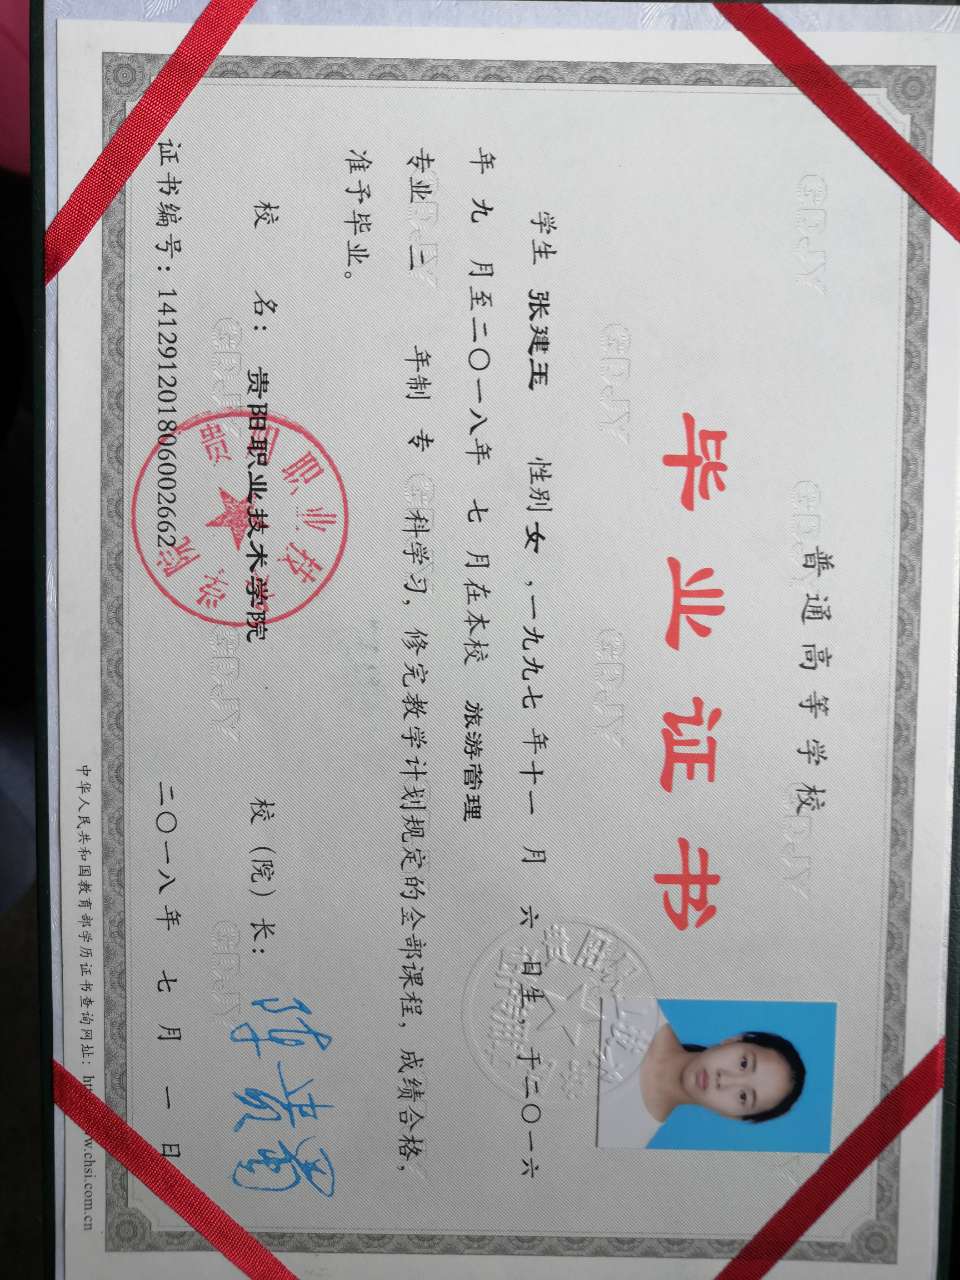 普通高等学校
毕业证书
学生 张建玉 性别 女 ，一九九七 年十一 月 六 日生，于二〇一六
年 九 月至二〇一八年 七 月在本校 旅游管理
专业 二 年制 专 科学习，修完教学计划规定的全部课程，成绩合格，
准予毕业。
校 名：贵阳职业技术学院 校（院）长：
证书编号：141291201806002662 二〇一八年 七 月 一 日
中华人民共和国教育部学历证书查询网址：
w.chsi.com.cn
贵阳职业技术学院
GDJY